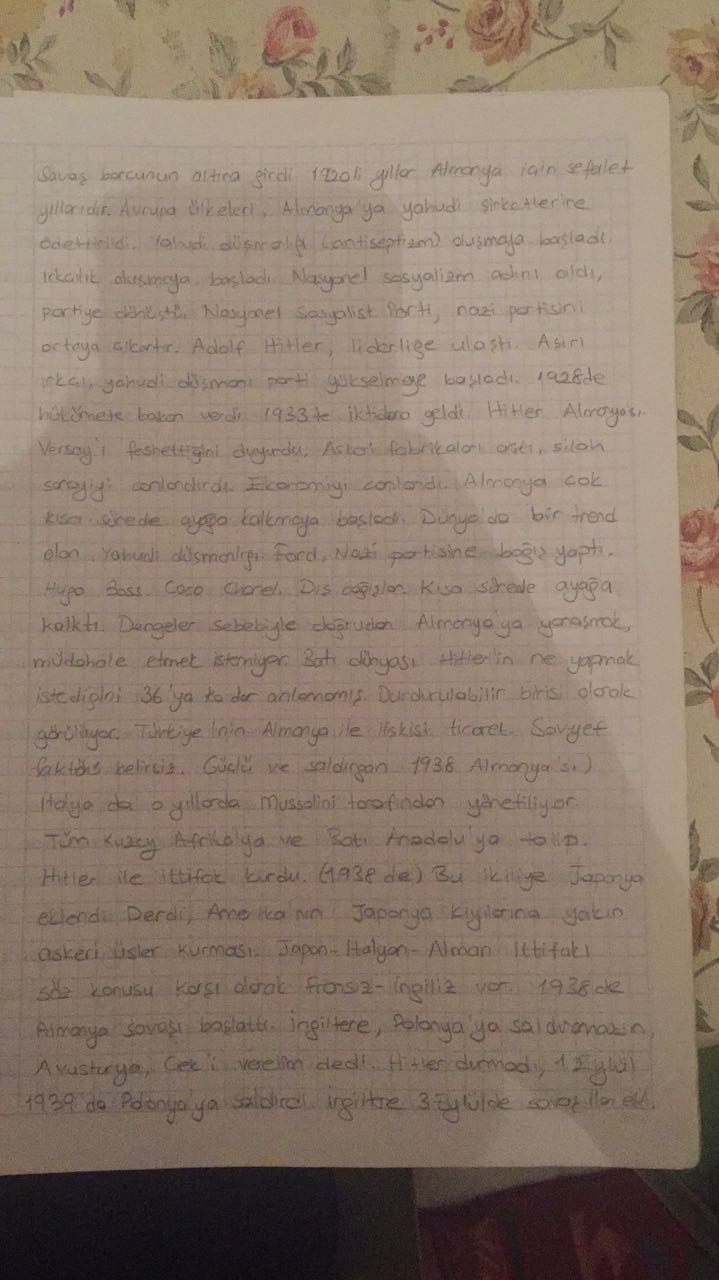 Savaş borcunun altına girdi 1920li yıllar Almanya için sefalet
yıllarıdır. Avrupa ülkeleri, Almanya'ya yahudi şirketlerine
ödettirildi. Yahudi düşmalığı (antiseptizm) oluşmaya başladı.
Irkçılık oluşmaya başladı. Nasyonel sosyalizm adını aldı,
partiye dönüştü. Nasyonel Sosyalist Parti, nazi partisini
ortaya çıkartır. Adolf Hitler, liderliğe ulaştı. Aşırı
ırkçı, yahudi düşmanı parti yükselmeye başladı. 1928de
hükümete bakan verdi 1933'te iktidara geldi. Hitler Almanyası
Versay'ı feshettiğini duyurdu. Askeri fabrikaları açtı, silah
sanayiyi canlandırdı. Ekonomiyi canlandı. Almanya çok
kısa sürede ayağa kalkmaya başladı. Dünya'da bir trend
olan Yahudi düşmanlığı. Ford, Nazi partisine bağış yaptı.
Hugo Boss. Coco Chanel. Dış bağışlar. Kısa sürede ayağa
kalktı. Dengeler sebebiyle doğrudan Almanya'ya yanaşmak,
müdahale etmek istemiyor. Batı dünyası Hitler'in ne yapmak
istediğini 36'ya kadar anlamamış. Durdurulabilir birisi olarak
görülüyor. Türkiye'nin Almanya ile ilişkisi ticaret. Sovyet
faktörü belirsiz. Güçlü ve saldırgan 1938 Almanya'sı)
İtalya da o yıllarda Mussolini tarafından yönetiliyor.
Tüm Kuzey Afrika'ya ve Batı Anadolu'ya talip.
Hitler ile ittifak kurdu. (1938'de) Bu ikiliye Japonya
eklendi Derdi, Amerika'nın Japonya kıyılarına yakın
askeri üsler kurması. Japon-İtalyan-Alman ittifakı
söz konusu Karşı olarak fransız-ingiliz var. 1938'de
Almanya savaşı başlattı. İngiltere, Polonya'ya saldırmasın,
Avusturya, Çek'i verelim dedi. Hitler durmadı, 1 Eylül
1939'da Polonya'ya saldırdı. İngiltere 3 Eylülde savaş ilan etti.